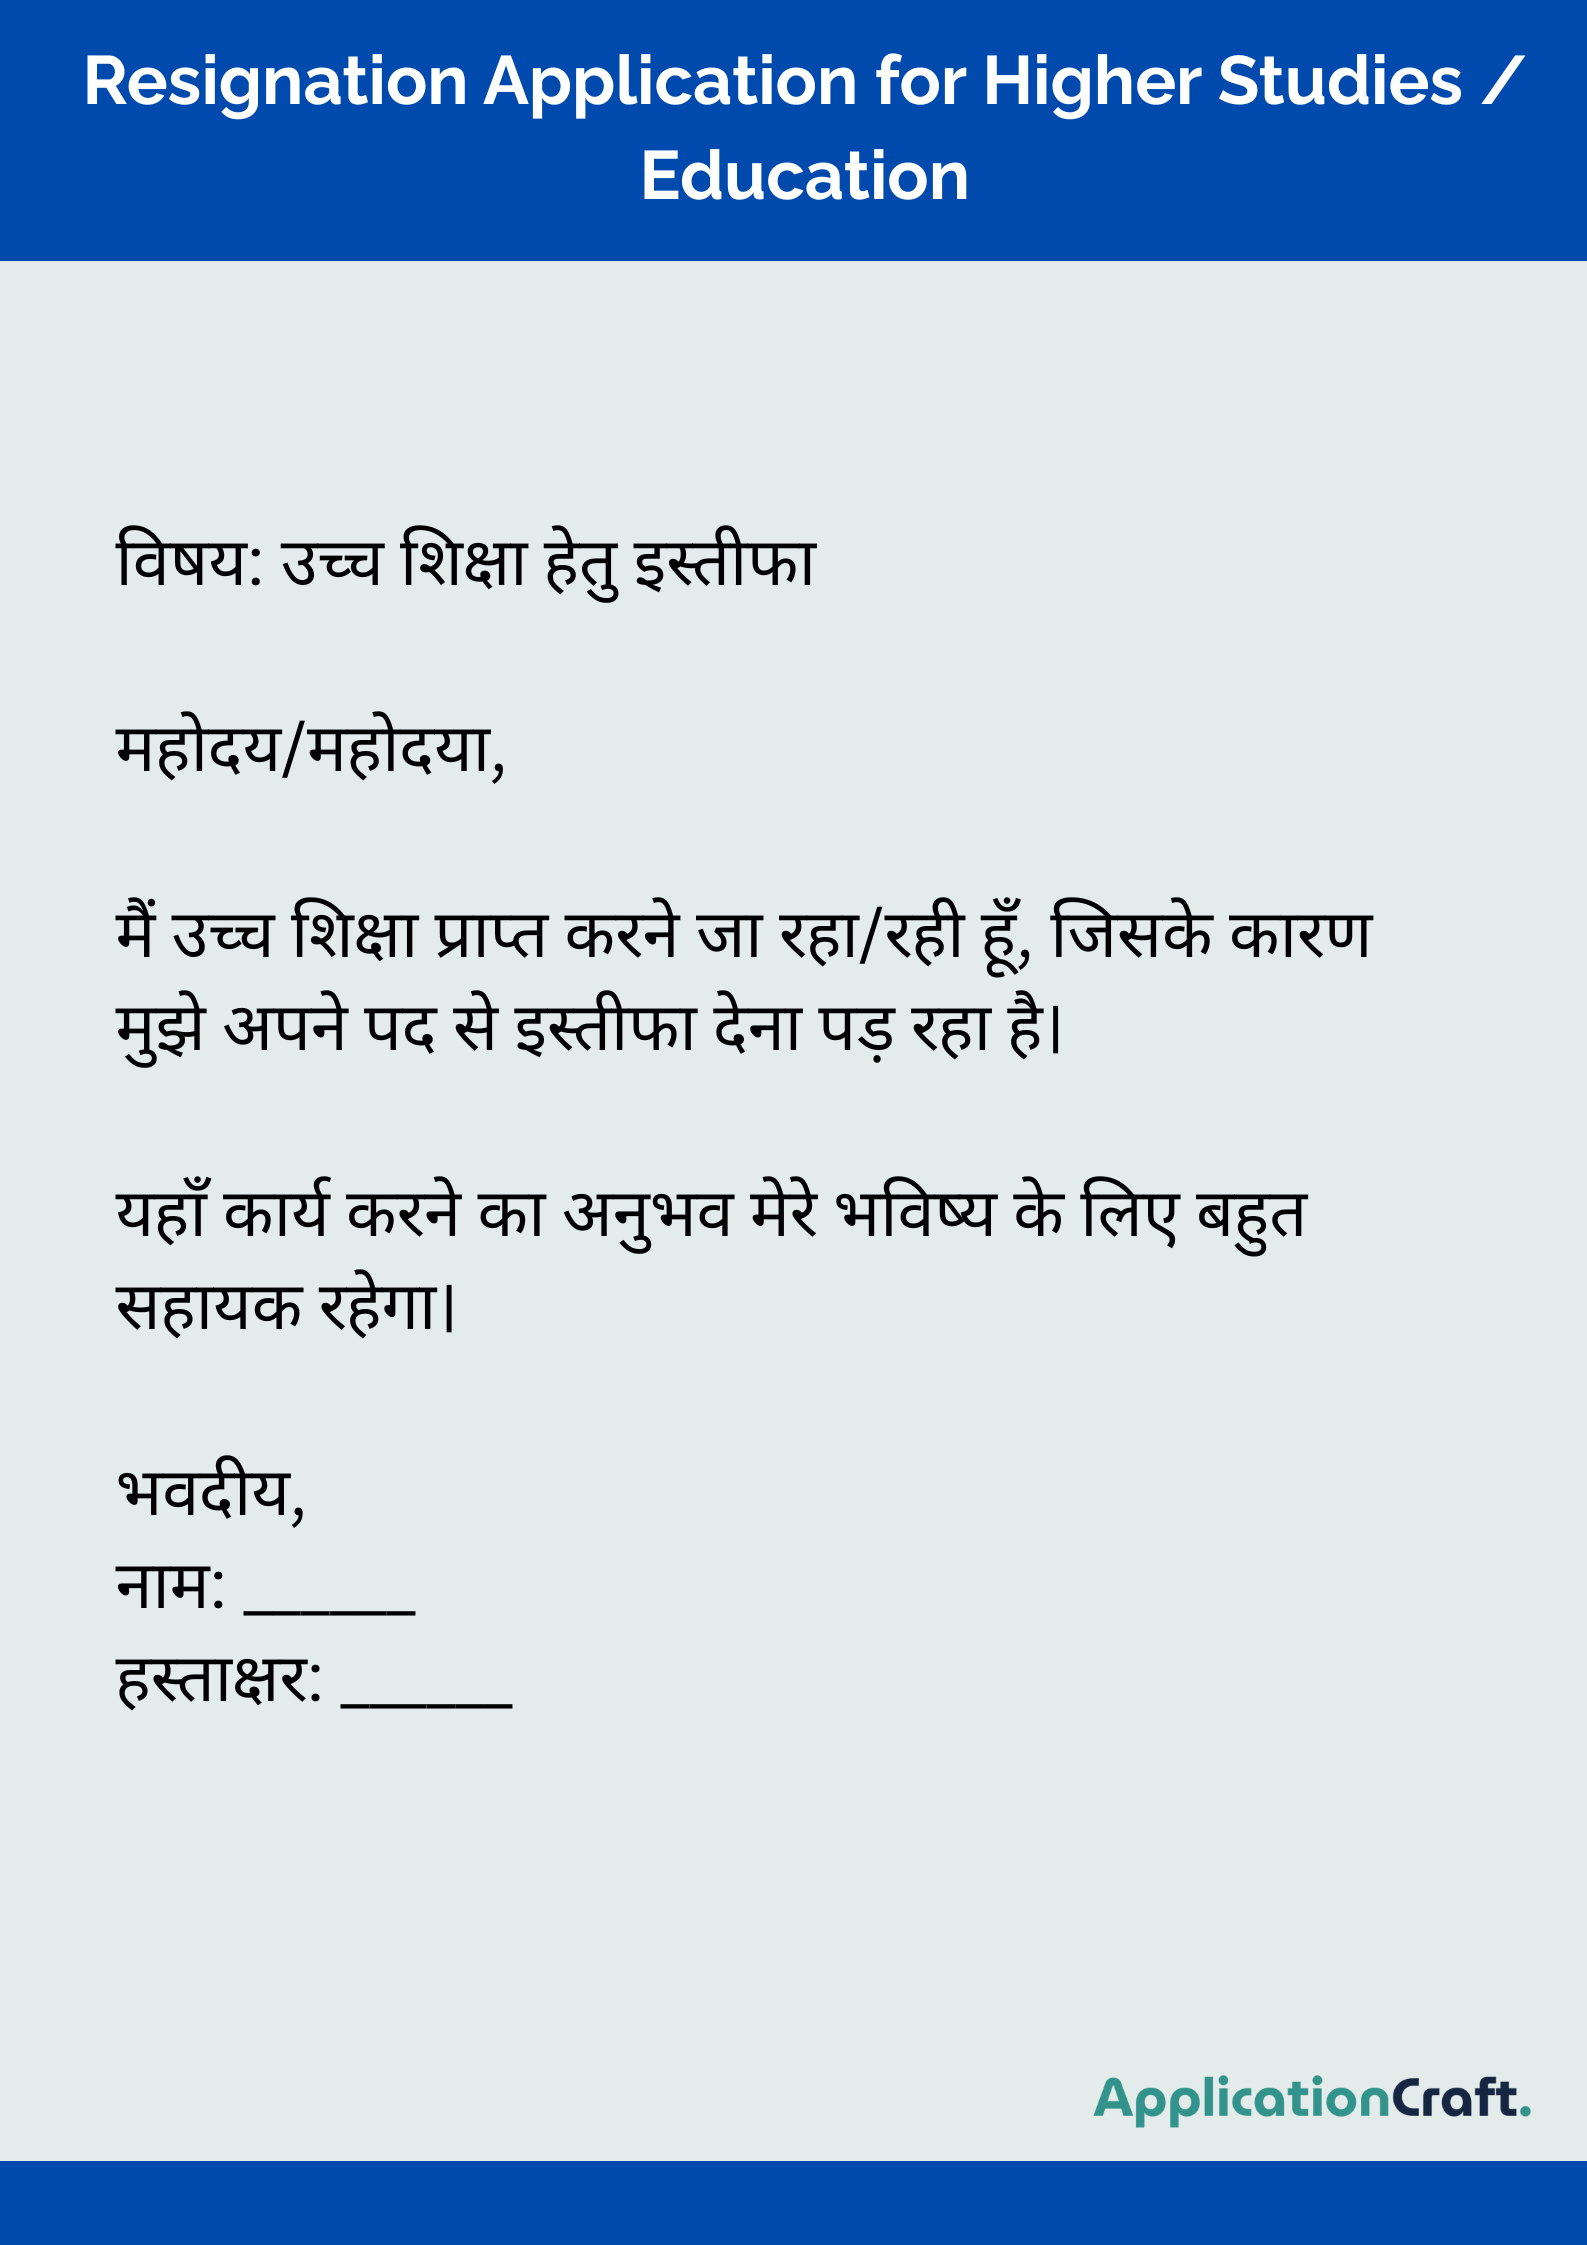 Resignation Application for Higher Studies /
Education
विषय: उच्च शिक्षा हेतु इस्तीफा
महोदय/महोदया,
मैं उच्च शिक्षा प्राप्त करने जा रहा/रही हूँ, जिसके कारण
मुझे अपने पद से इस्तीफा देना पड़ रहा है।
यहाँ कार्य करने का अनुभव मेरे भविष्य के लिए बहुत
सहायक रहेगा।
भवदीय,
नाम: ______
हस्ताक्षर: ______
ApplicationCraft.